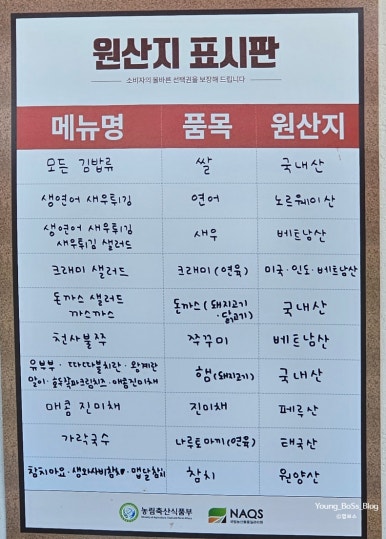 원산지 표시판
소비자의 올바른 선택권을 보장해 드립니다
메뉴명 품목 원산지
모든 김밥류 쌀 국내산
생연어 새우튀김 연어 노르웨이산
생연어 새우튀김
새우튀김 샐러드 새우 베트남산
크래미 샐러드 크래미(연육) 미국·인도·베트남산
돈까스 샐러드
까스까스 돈까스(돼지고기·닭고기) 국내산
천사불쭈 쭈꾸미 베트남산
유부부·따따불치란·왕계란
말이·숑숑할파크림치즈·매콤진미채 햄(돼지고기) 국내산
매콤 진미채 진미채 페루산
가락국수 나루토마끼(연육) 태국산
참치마요·생와사비참치·맵달참치 참치 원양산
농림축산식품부
NAQS
국립농산물품질관리원
Young_BoSs_Blog